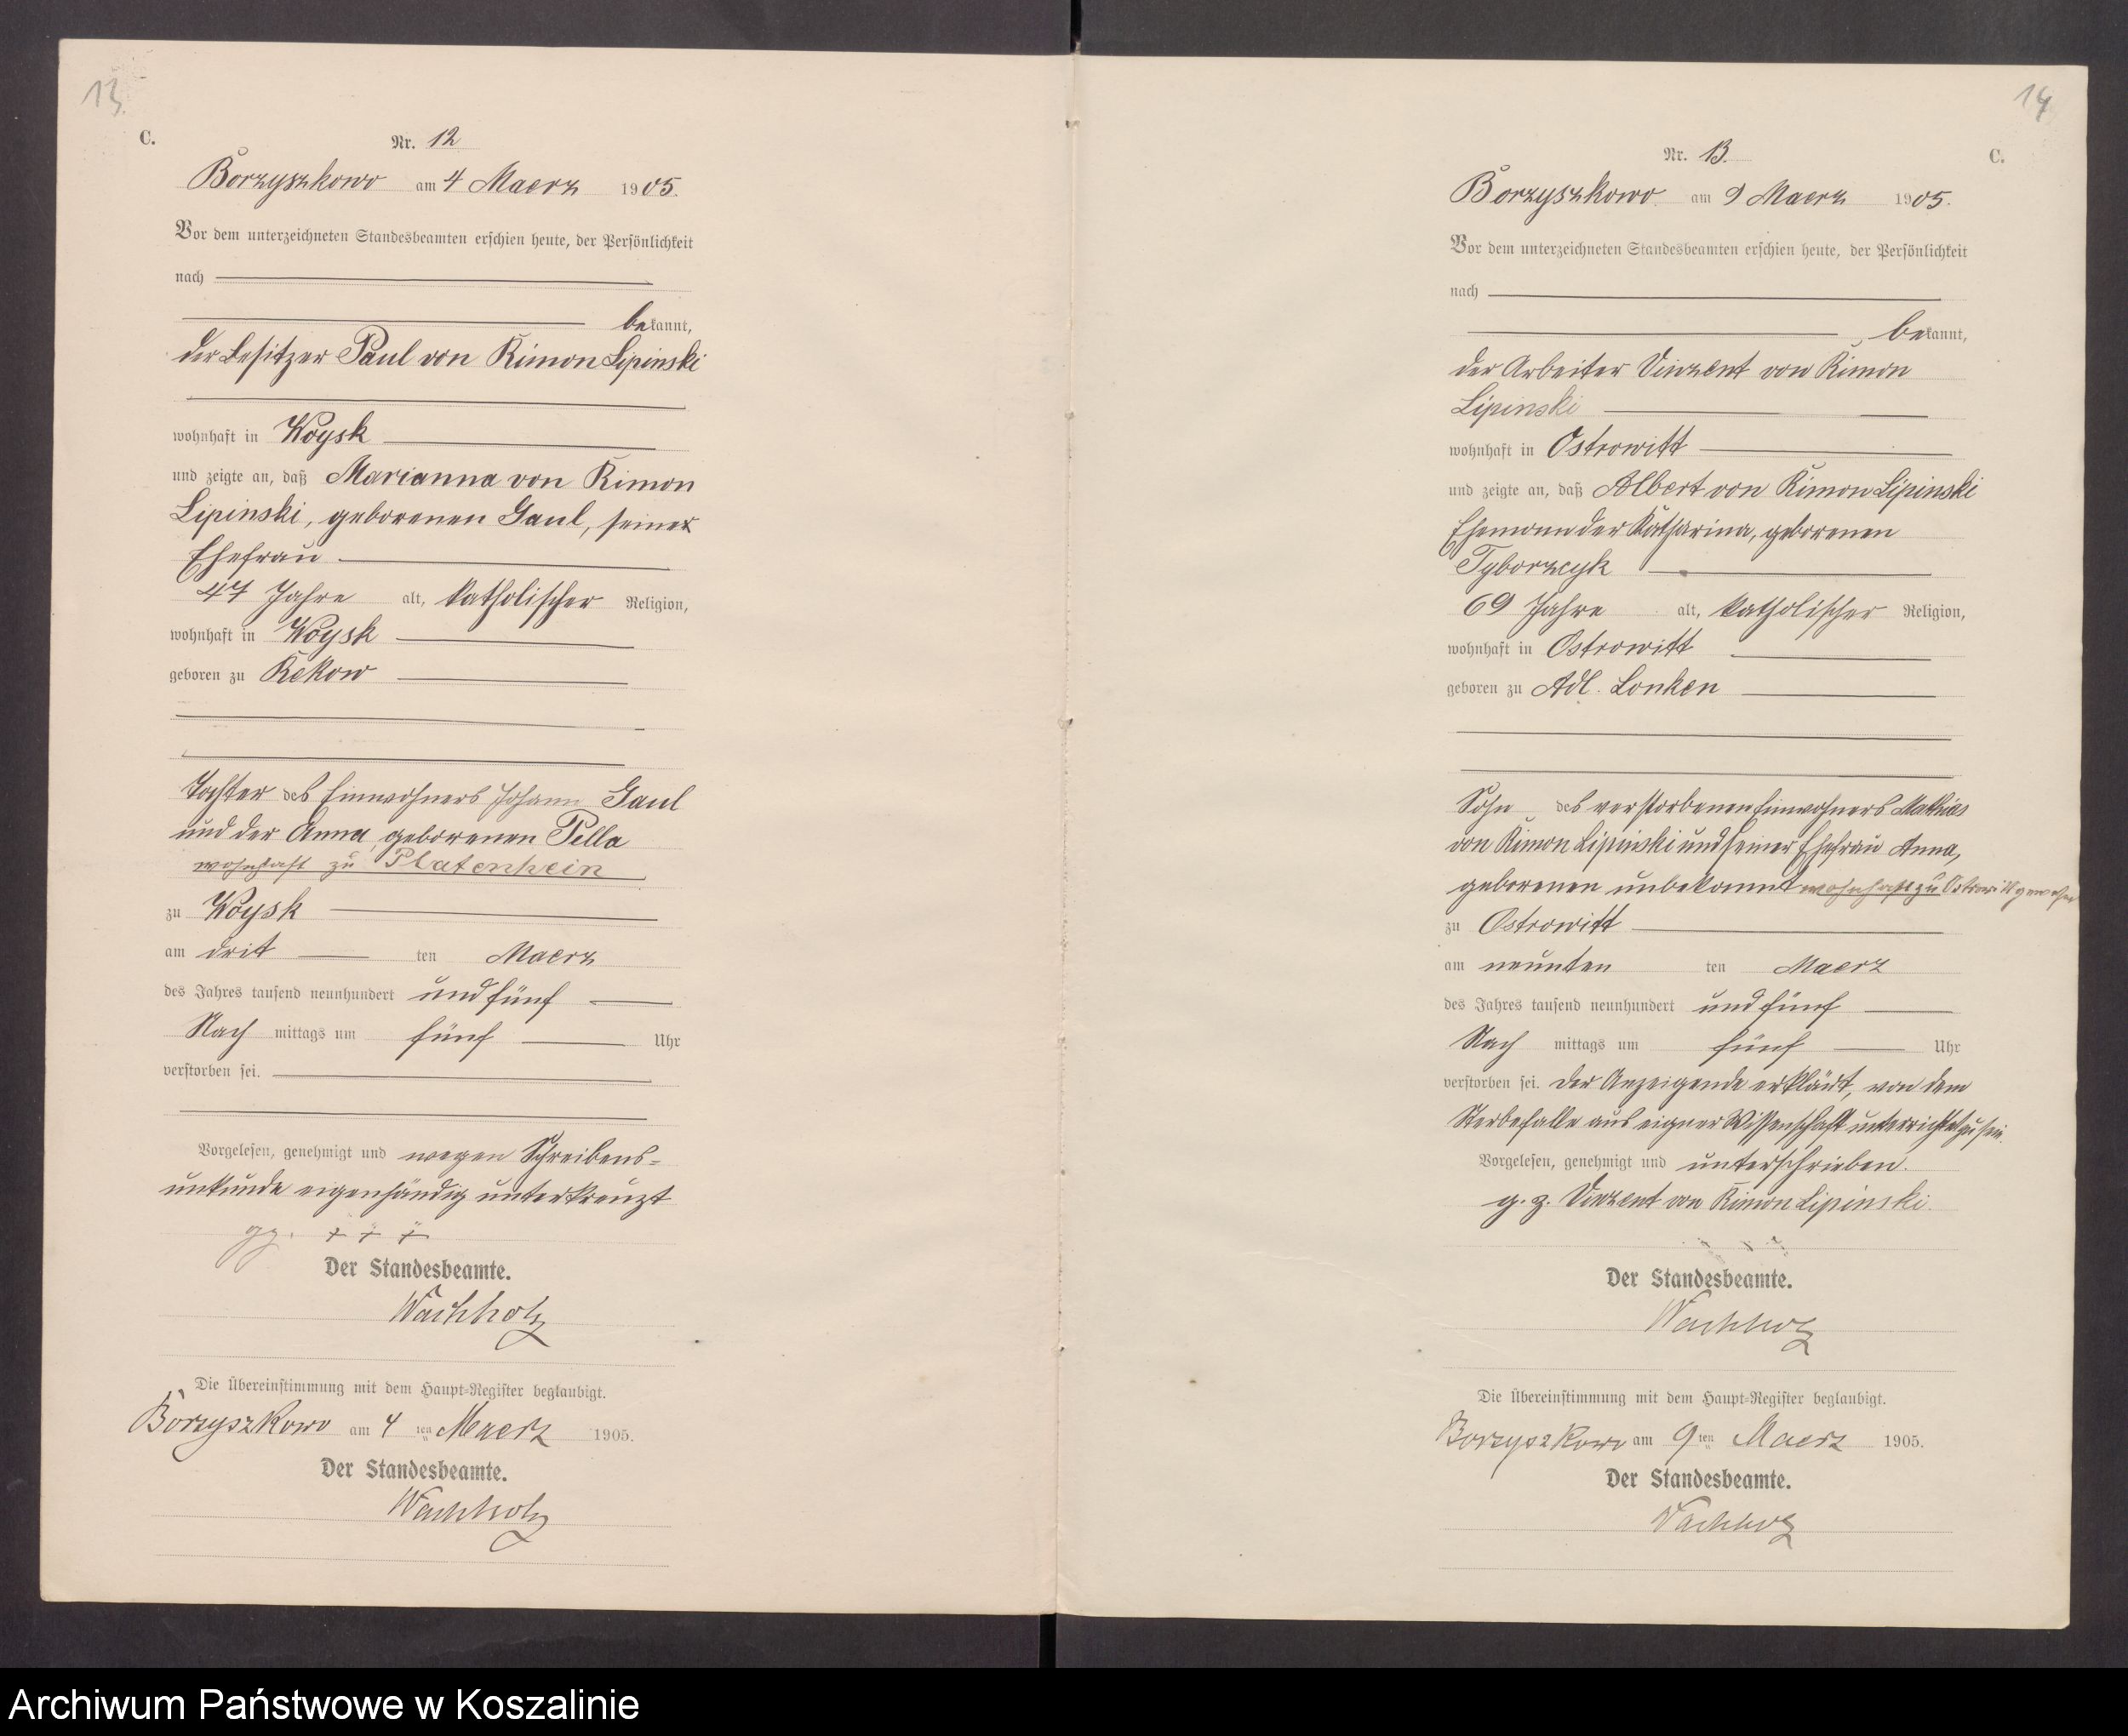 13
C.
Nr. 12
Borzyszkowo am 4 Maerz 1905.
Vor dem unterzeichneten Standesbeamten erschien heute, der Persönlichkeit
nach
bekannt,
der Besitzer Paul von Kimon Lipinski
wohnhaft in Woysk
und zeigte an, daß Marianna von Kimon
Lipinski, geborenen Gaul, seiner
Ehefrau
47 Jahre alt, katholischer Religion,
wohnhaft in Woysk
geboren zu Kekow
Tochter des Einwohners Johann Gaul
und der Anna, geborenen Pella
wohnhaft zu Platenhein
zu Woysk
am dritt ten Maerz
des Jahres tausend neunhundert und fünf
Nach mittags um fünf Uhr
verstorben sei.
Vorgelesen, genehmigt und wegen Schreibens-
unkunde eigenhändig unterkreuzt
gz. + + +
Der Standesbeamte.
Wachholz
Die Übereinstimmung mit dem Haupt-Register beglaubigt.
Borzyszkowo am 4 ten Maerz 1905.
Der Standesbeamte.
Wachholz
14
C.
Nr. 13.
Borzyszkowo am 9 Maerz 1905.
Vor dem unterzeichneten Standesbeamten erschien heute, der Persönlichkeit
nach
bekannt,
der Arbeiter Vinzent von Kimon
Lipinski
wohnhaft in Ostrowitt
und zeigte an, daß Albert von Kimon Lipinski
Ehemann der Katharina, geborenen
Tyborzcyk
69 Jahre alt, katholischer Religion,
wohnhaft in Ostrowitt
geboren zu Adl. Lonken
Sohn des verstorbenen Einwohners Mathias
von Kimon Lipinski und seiner Ehefrau Anna,
geborenen unbekannt wohnhaft zu Ostrowitt
zu Ostrowitt
am neunten ten Maerz
des Jahres tausend neunhundert und fünf
Nach mittags um fünf Uhr
verstorben sei. Der Anzeigende erklärt, von dem
Sterbefalle aus eigner Wissenschaft unterrichtet zu sein.
Vorgelesen, genehmigt und unterschrieben.
g. z. Vinzent von Kimon Lipinski.
Der Standesbeamte.
Wachholz
Die Übereinstimmung mit dem Haupt-Register beglaubigt.
Borzyszkowo am 9 ten Maerz 1905.
Der Standesbeamte.
Wachholz
Archiwum Państwowe w Koszalinie